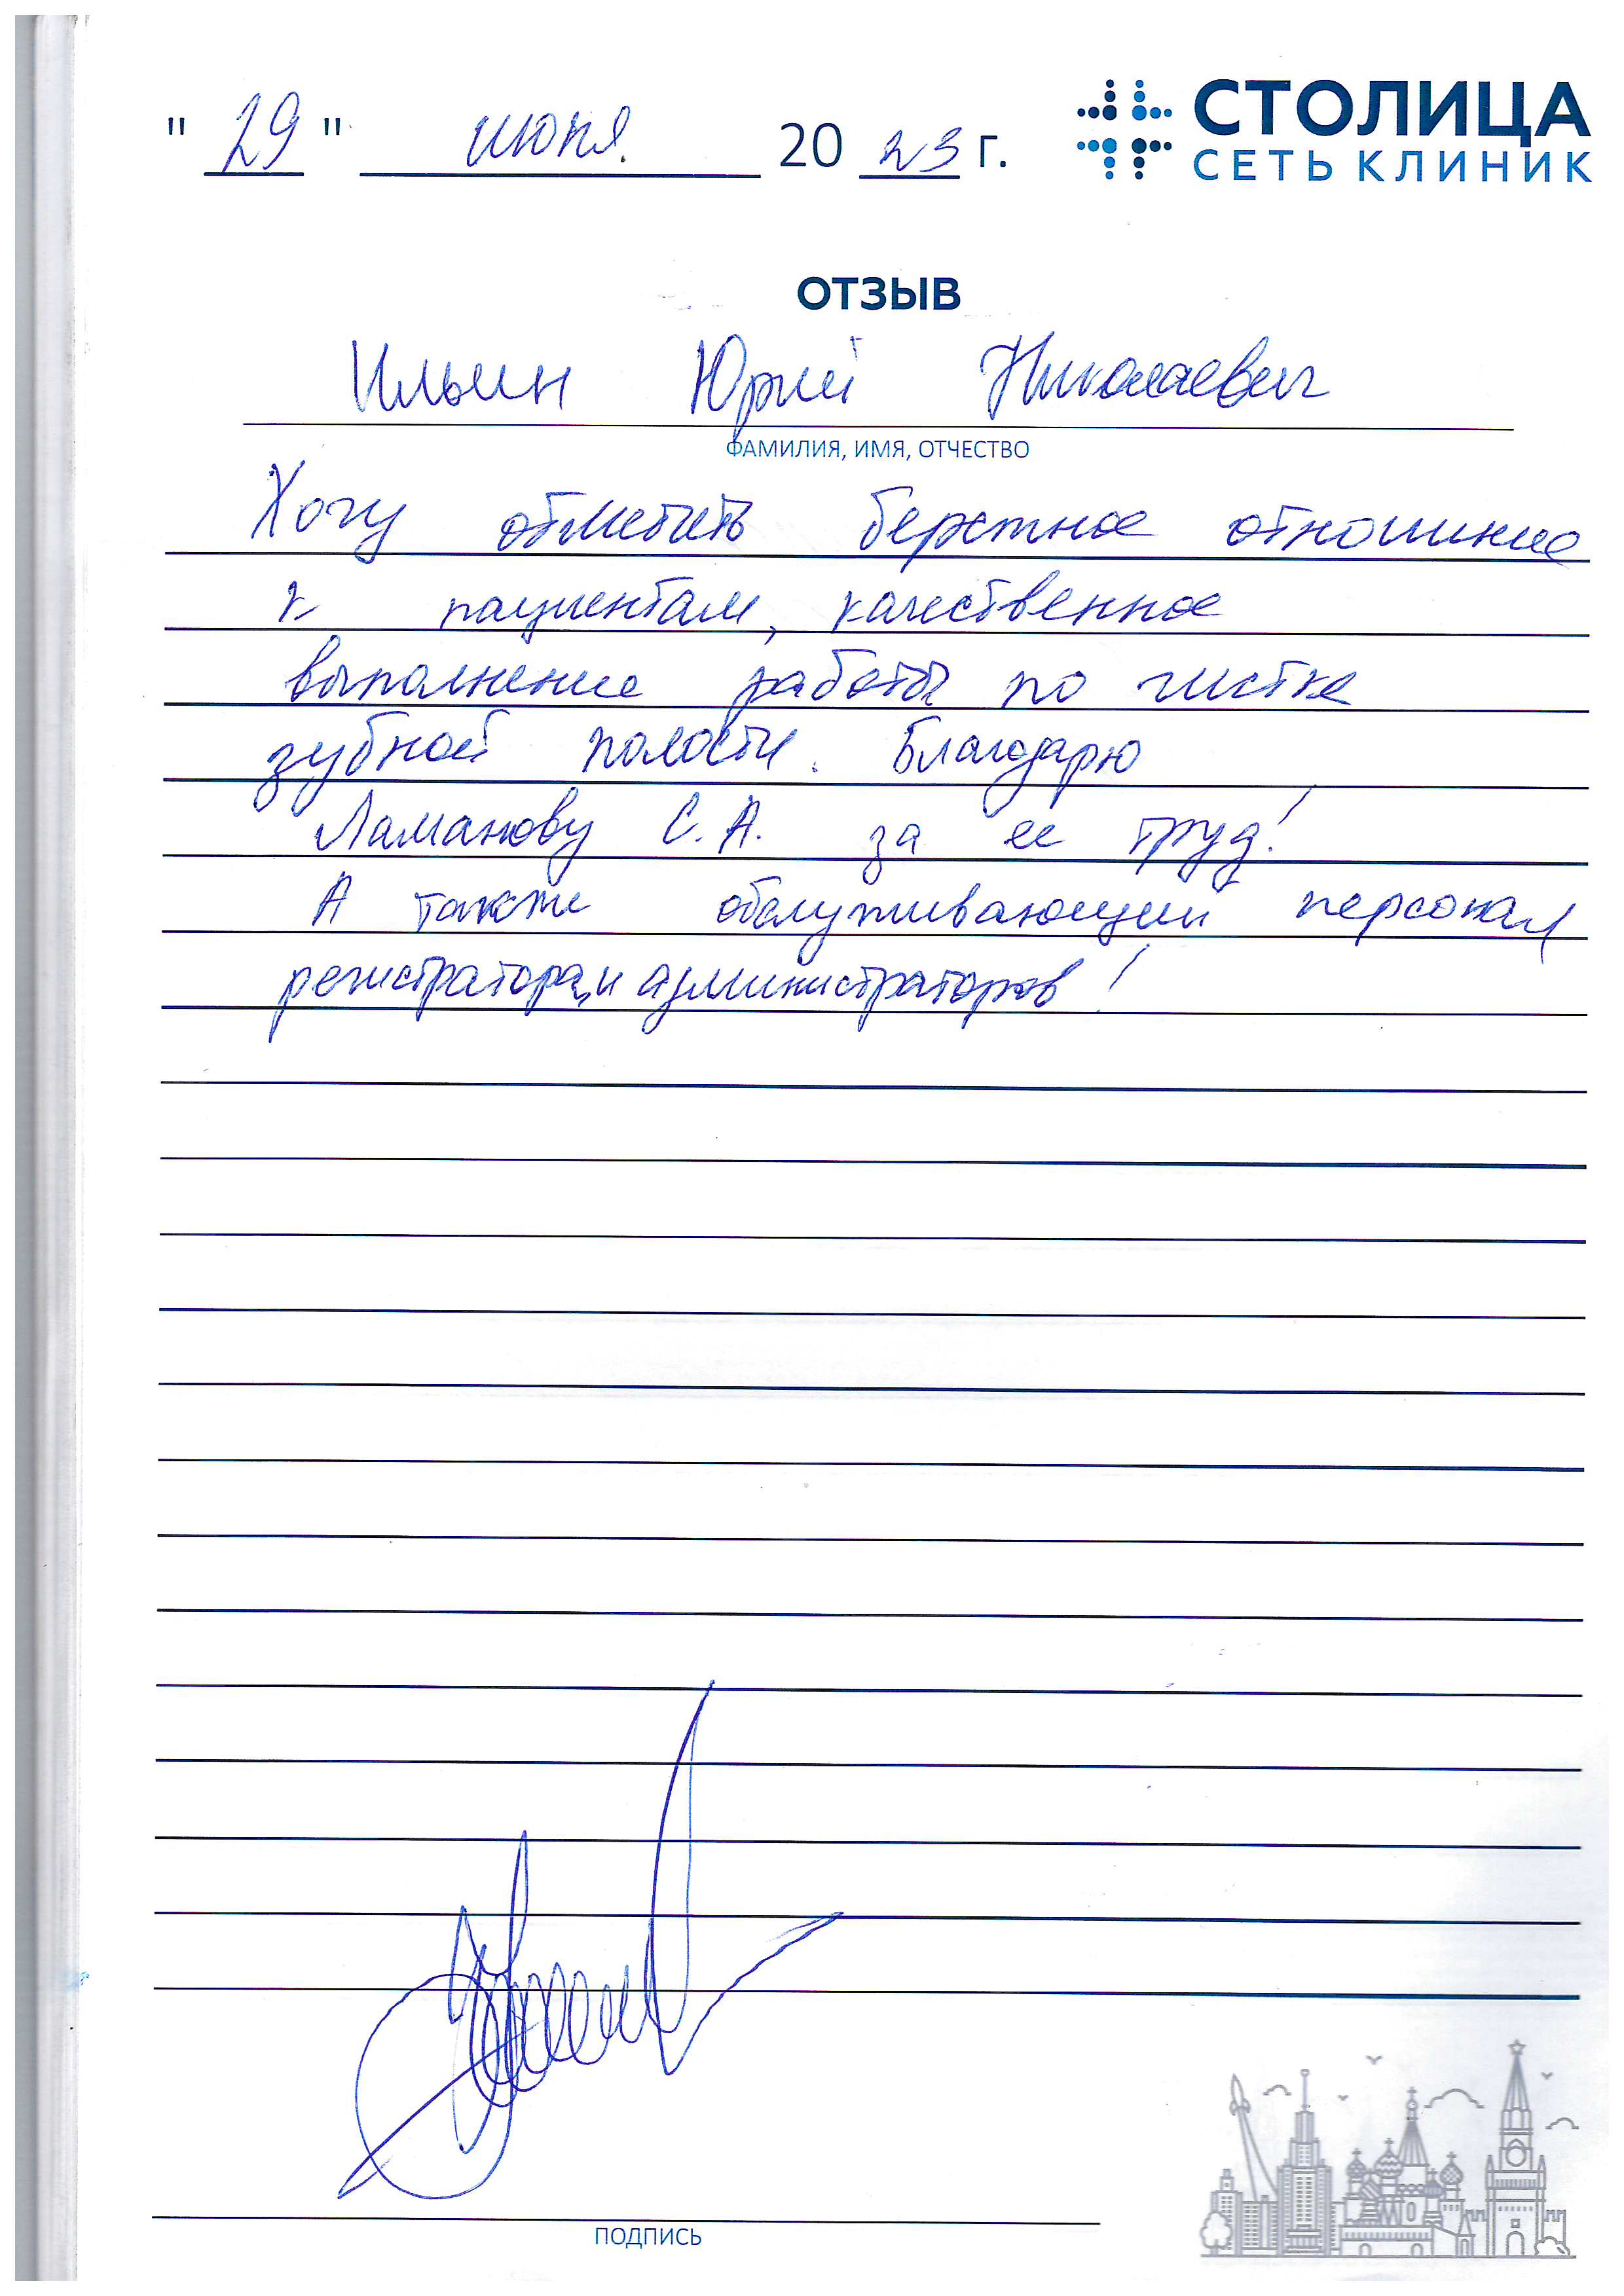 " 29 " июня 20 23 г.
СТОЛИЦА
СЕТЬ КЛИНИК
ОТЗЫВ
Ильин Юрий Николаевич
ФАМИЛИЯ, ИМЯ, ОТЧЕСТВО
Хочу отметить бережное отношение
к пациентам, качественное
выполнение работы по чистке
зубной полости. Благодарю
Ламанову С.А. за ее труд!
А также обслуживающий персонал
регистратора, и администраторов!
ПОДПИСЬ